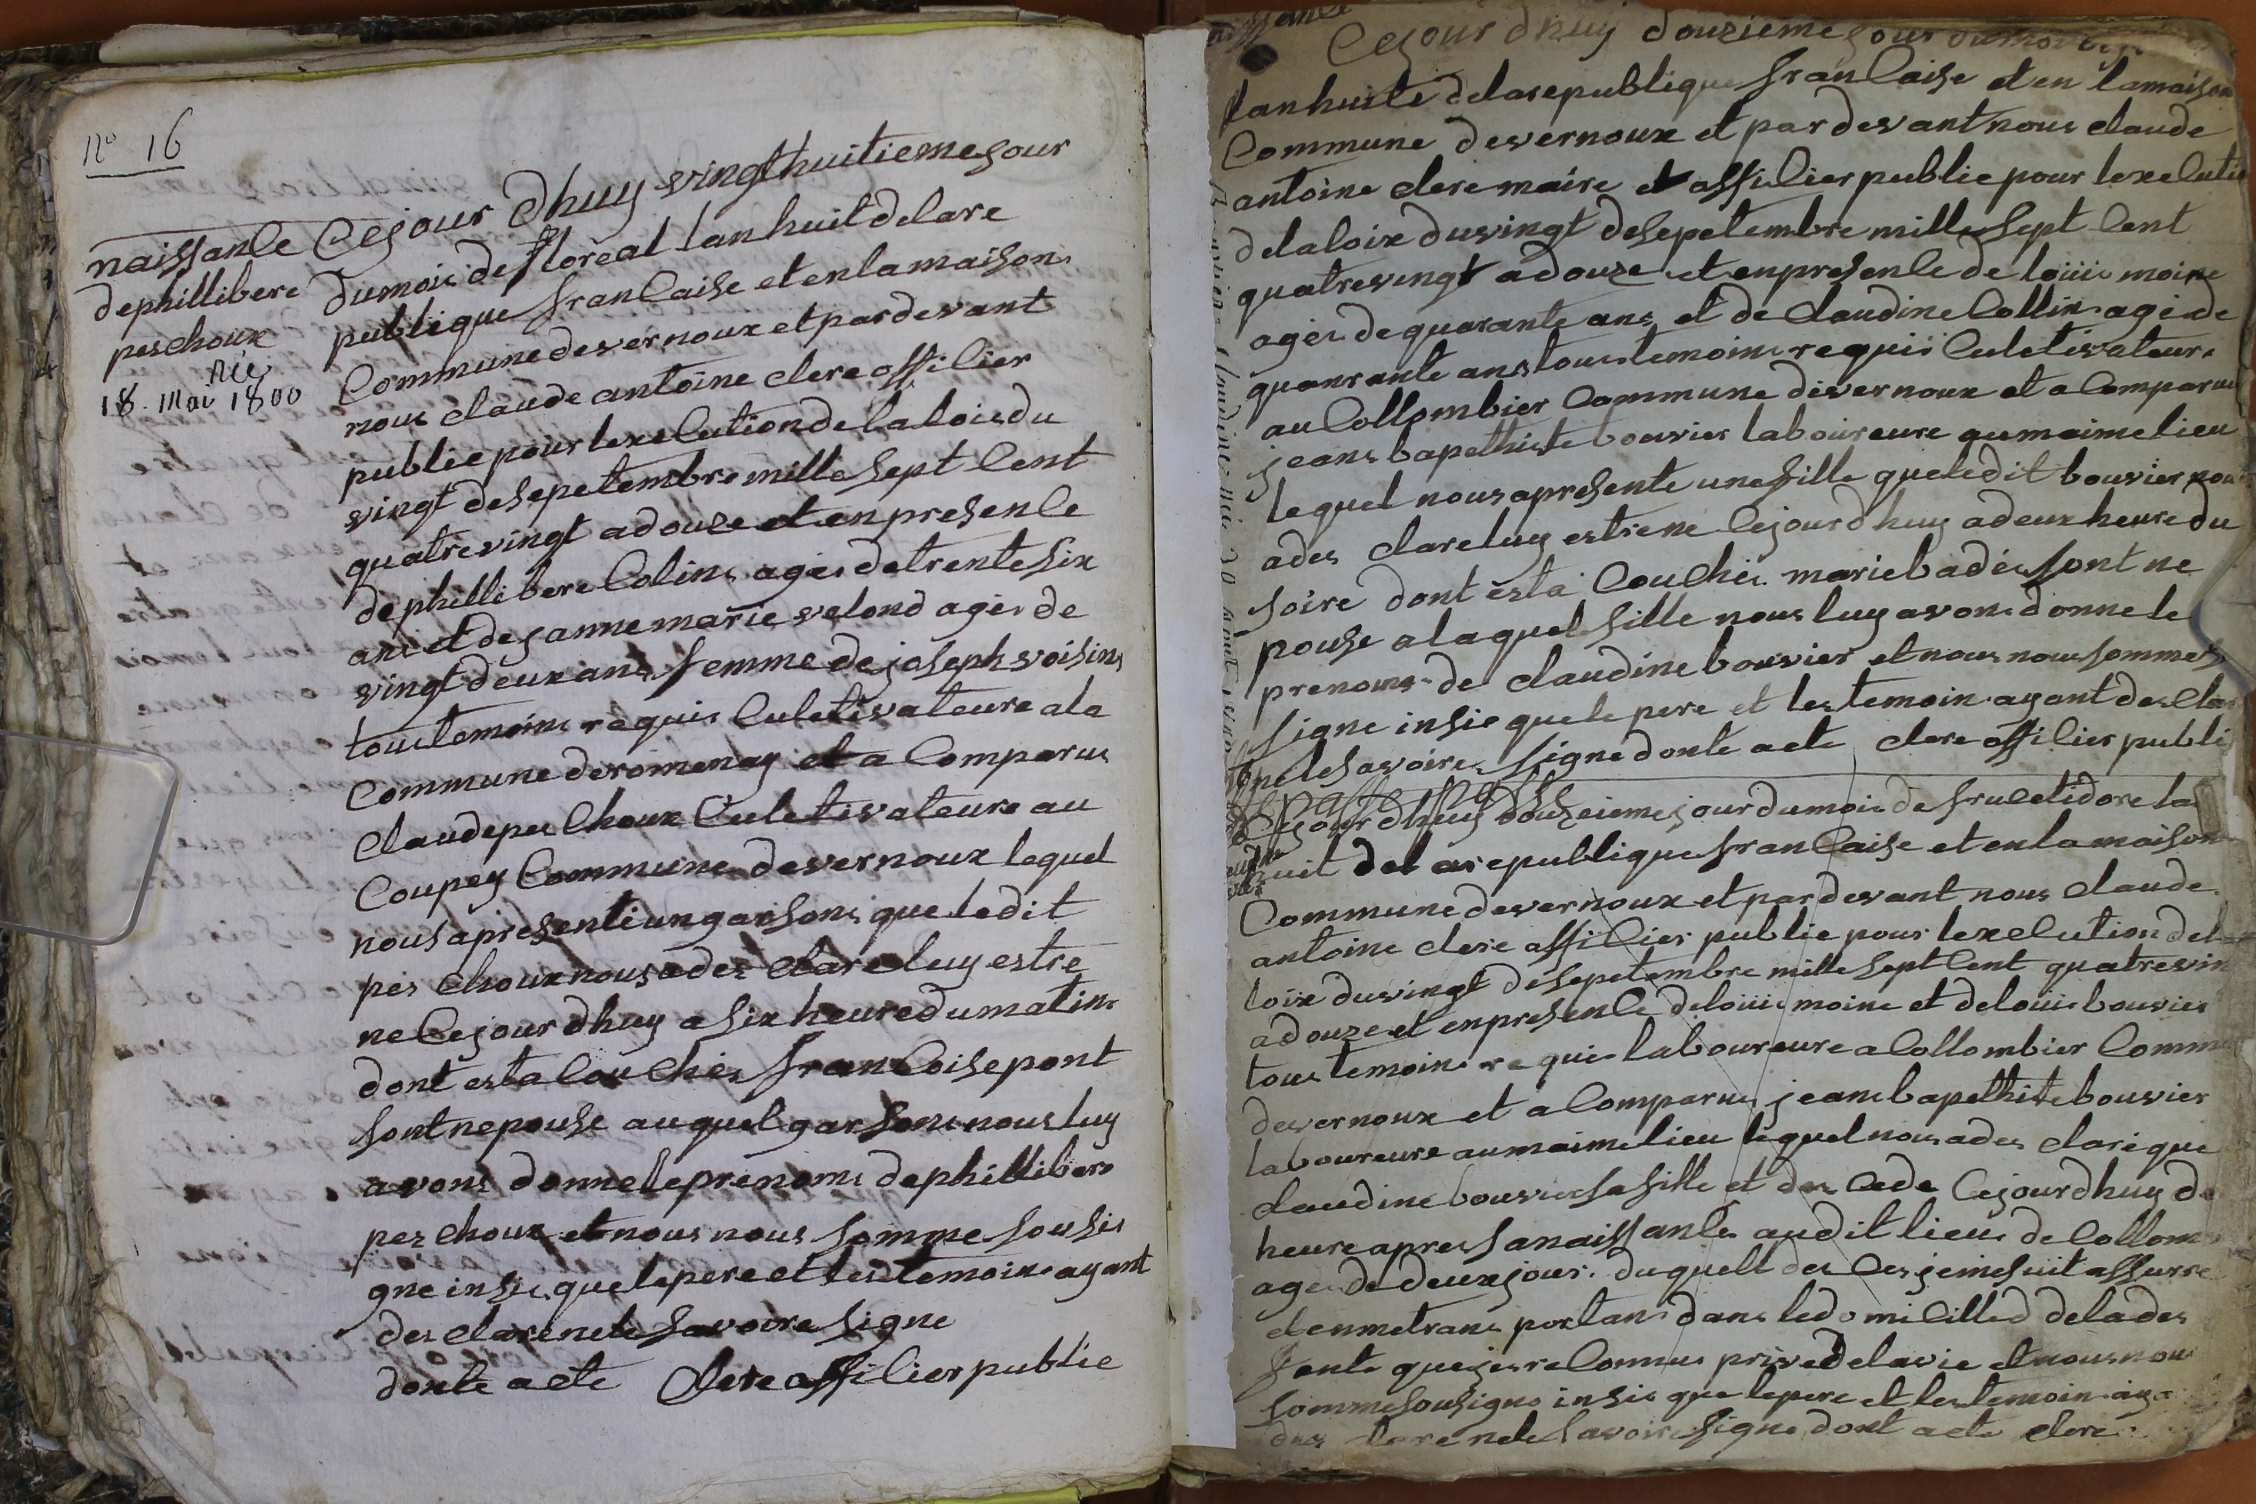 no 16
naissance
dephillibere
peschoux
née
18. Mai 1800
Cejour dhuy vingt huitieme jour
dumois de floreal lan huit de la re
publique francaise et en la maison
Commune de vernoux et par devant
nous claude antoine clere officier
public pour lexecution de la loix du
vingt de sepetembre mille sept cent
quatre vingt a douze et en presence
de phillibere Colin agés de trente six
ans et de janne marie velond agés de
vingt deux ans femme de joseph voisin
tous temoins requis culetivateure a la
Commune de romenay et a Comparus
Claude peschoux Culetivateure au
Coupey Commune de vernoux lequel
nous apresenté un garson que le dit
pes choux nous a des clare luy estre
ne Cejour dhuy a six heure du matin
dont est a Couchés francoise pont
sont nepouse au quel garson nous luy
avons donne le prenoms de phillibere
pes choux et nous nous somme soussi
gne insi que le pere et les temoins ayant
des clare ne le savoire signe
donte acte Clere officier public
naissance
Cejour dhuy douzieme jour du mois
lan huite de la republique francaise et en la maison
Commune de vernoux et par devant nous claude
antoine clere maire et officier public pour lexecutio
de la loix du vingt de sepetembre mille sept cent
quatre vingt a douze et en presence de loüis moine
agés de quarante ans et de claudine Collin agé de
quanrante ans tous temoins requis Culetivateure
au Collombier Commune de vernoux et a Comparus
jean bapethiste bouvier laboureure au maime lieu
le quel nous apresente une fille que le dit bouvier nous
a des clare luy estre ne Cejour dhuy a deux heure du
soire dont est a Couchés marie badés sont ne
pouse a la quel fille nous luy avons donne le
prenoms de claudine bouvier et nous nous sommes
signe insis que le pere et les temoin ayant des cla
ne le savoire signe donte acte clere officier publi
Cejour dhuy douzeieme jour du mois de fruCetidore la
huit de la republique francaise et en la maison
Commune de vernoux et par devant nous claude
antoine clere officier public pour lexecution del
loix du vingt de sepetembre mille sept cent quatre vin
a douze et en presence de loüis moine et de loüis bouvier
tous temoins requis laboureure a Collombier Comm
de vernoux et a Comparus jean bapethite bouvier
laboureure au maime lieu le quel nous a des claré que
claudine bouvier sa fille et des cede Cejour dhuy de
heure apres sa naissance au dit lieu de Collom
age de deux jour du quelt des ces je me suit assurre
et en me trans portans dans le domicilled de la des
fente que je reconnus prive de la vie et nous nou
somme sousigne insis que le pere et les temoin aya
des clare ne le savoire signe dont acte clere